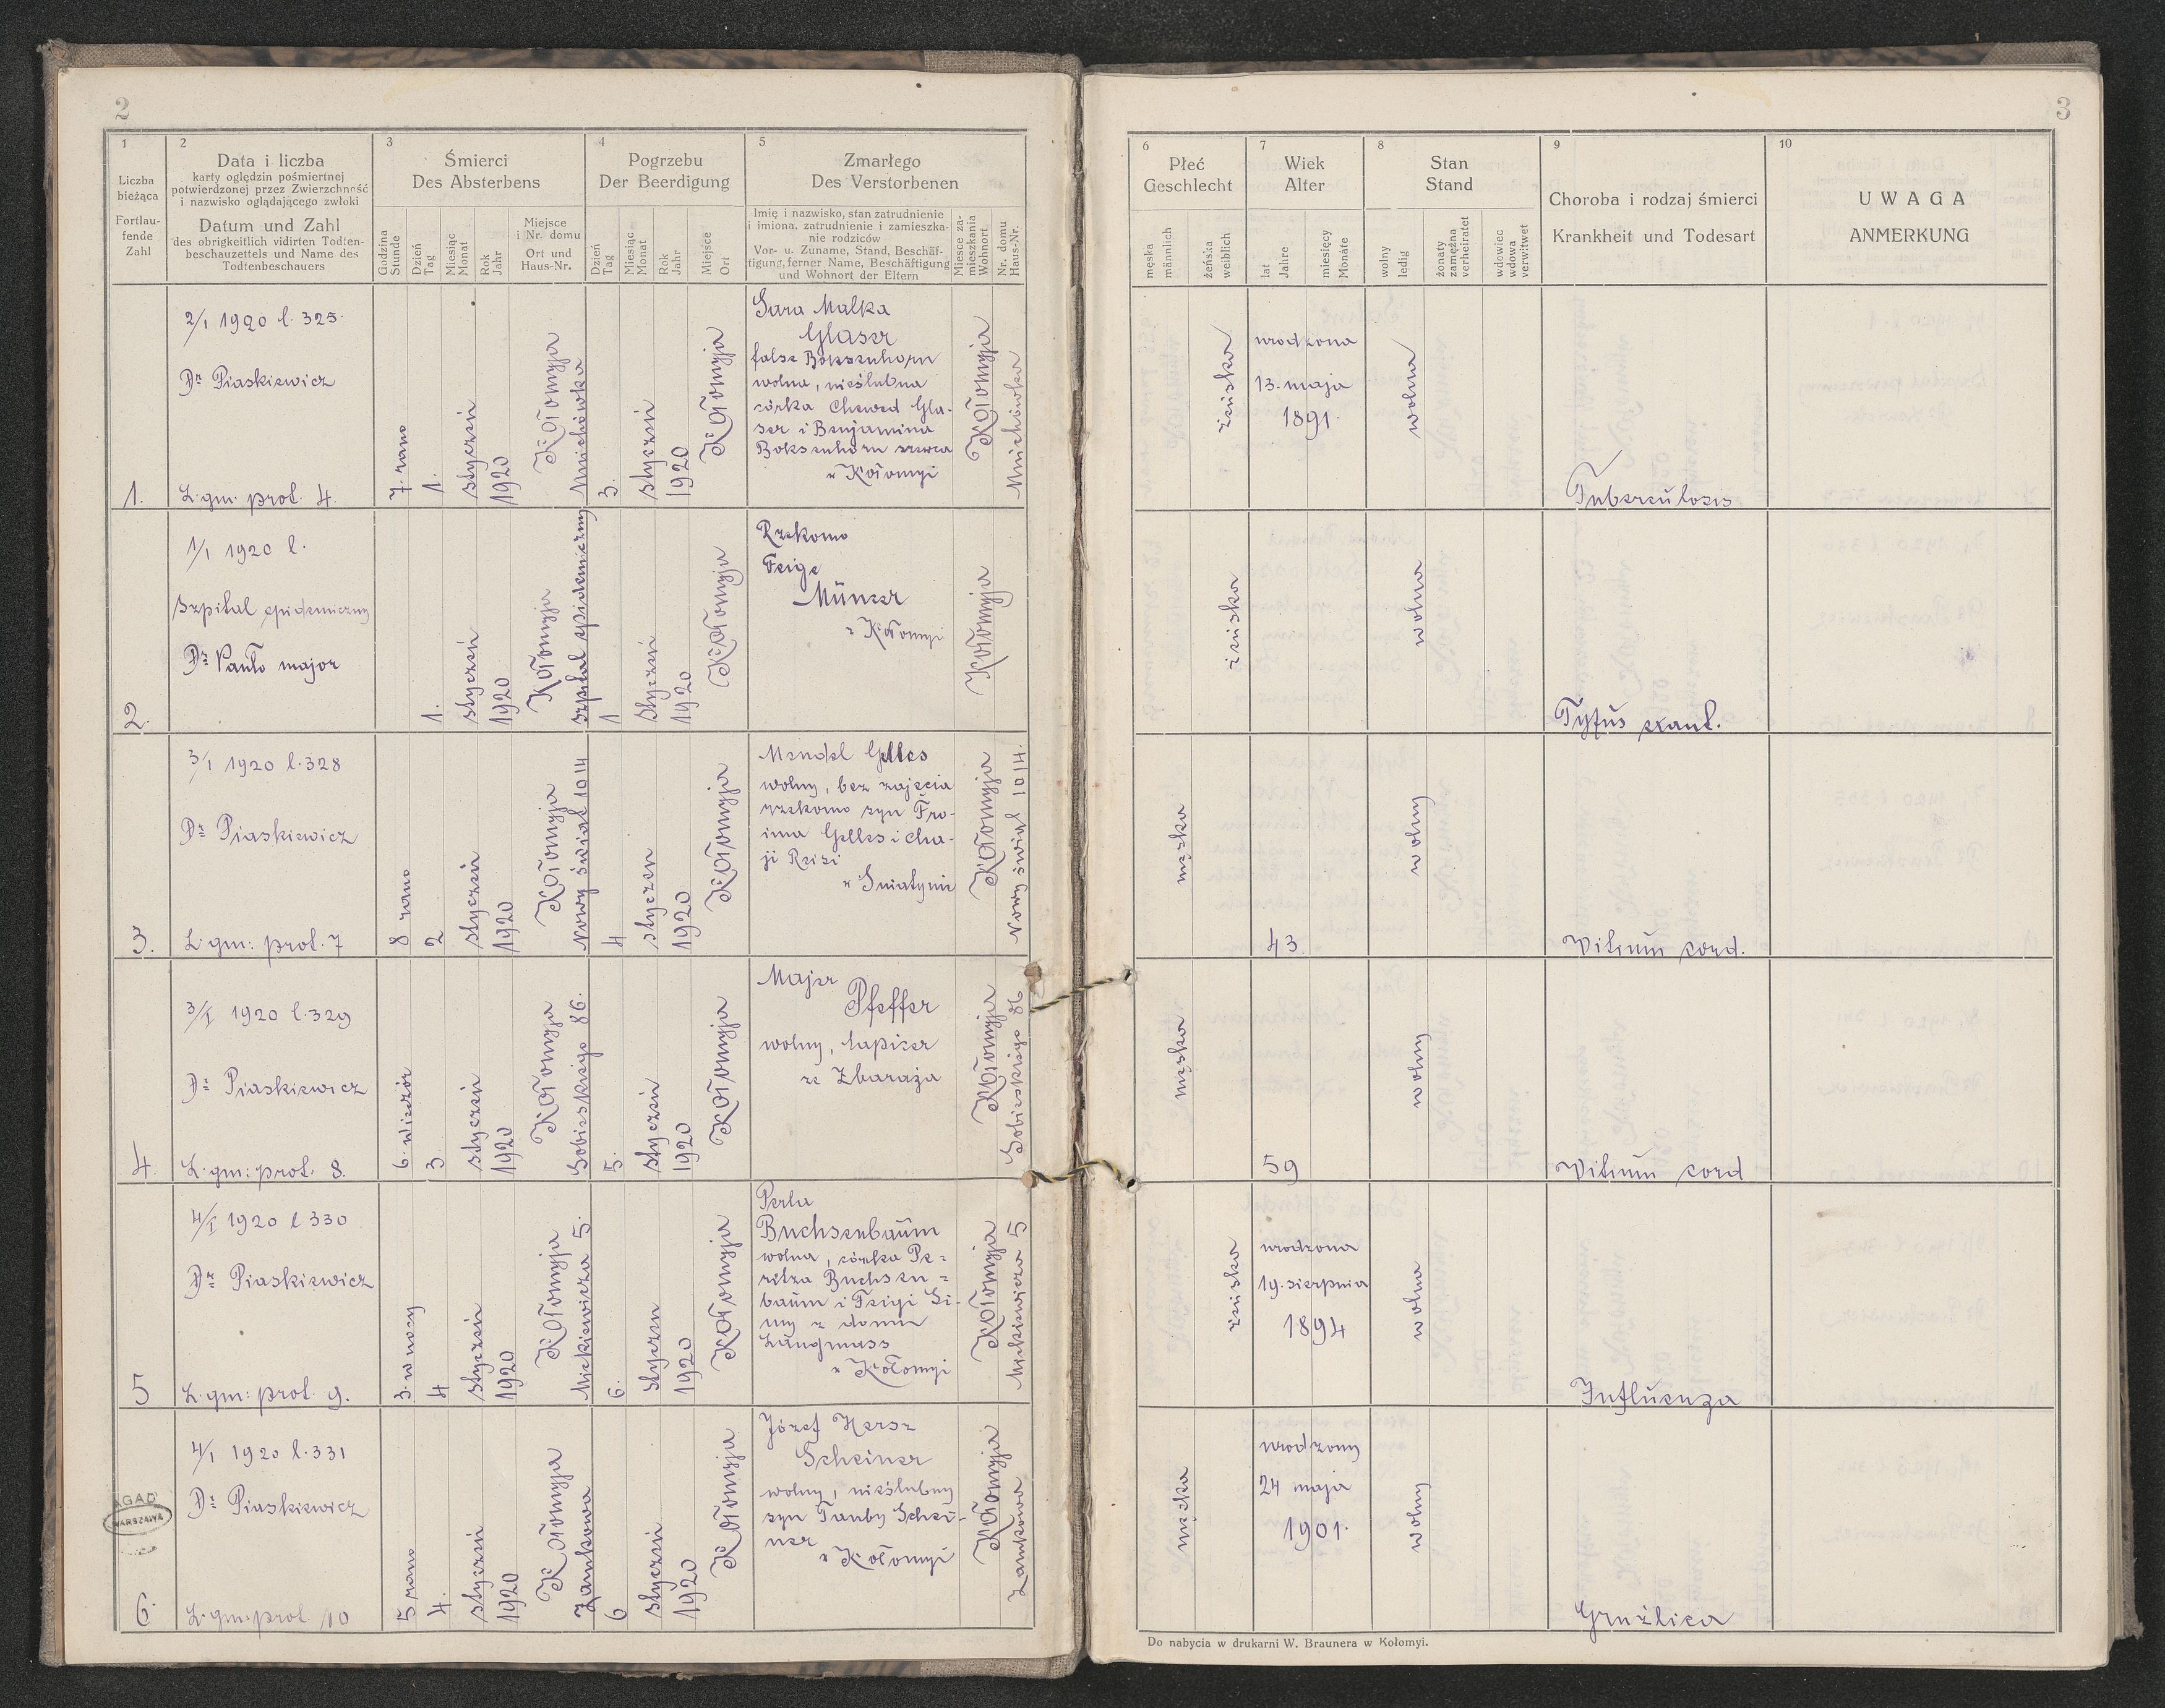 2
1
Liczba
bieżąca
Fortlau-
fende
Zahl
2
Data i liczba
karty oględzin pośmiertnej
potwierdzonej przez Zwierzchność
i nazwisko oglądającego zwłoki
Datum und Zahl
des obrigkeitlich vidirten Todten-
beschauzettels und Name des
Todtenbeschauers
3
Śmierci
Des Absterbens
Godzina
Stunde
Dzień
Tag
Miesiąc
Monat
Rok
Jahr
Miejsce
i Nr. domu
Ort und
Haus-Nr.
4
Pogrzebu
Der Beerdigung
Dzień
Tag
Miesiąc
Monat
Rok
Jahr
Miejsce
Ort
5
Zmarłego
Des Verstorbenen
Imię i nazwisko, stan zatrudnienie
i imiona, zatrudnienie i zamieszka-
nie rodziców
Vor- u. Zuname, Stand, Beschäf-
tigung, ferner Name, Beschäftigung
und Wohnort der Eltern
Miesce za-
mieszkania
Wohnort
Nr. domu
Haus-Nr.
1.
2/I 1920 l. 325.
Dr Piaskiewicz
L. gm. prot. 4.
7. rano
1.
styczeń
1920
Kołomyja
Mnichówka
3.
styczeń
1920
Kołomyja
Sara Malka
Glaser
false Boksenhorn
wolna, nieślubna
córka Chewed Gla-
ser i Benjamina
Boksenhorn szewca
z Kołomyi
Kołomyja
Mnichówka
2.
1/I 1920 l.
Szpital epidemiczny
Dr Vanto major
1.
styczeń
1920
Kołomyja
szpital epidemiczny
1
styczeń
1920
Kołomyja
Rzekomo
Feige
Münzer
z Kołomyi
Kołomyja
3.
3/I 1920 l. 328
Dr Piaskiewicz
L. gm: prot. 7
8 rano
2
styczeń
1920
Kołomyja
Nowy świat 1014
4
styczen
1920
Kołomyja
Mendel Gelles
wolny, bez zajęcia
rzekomo syn Fro-
ima Gelles i Cha-
ji Reisi
z Sniatynia
Kołomyja
Nowy świat 1014.
4.
3/I 1920 l. 329
Dr Piaskiewicz
L. gm: prot. 8.
6. wieczór
3
styczeń
1920
Kołomyja
Sobieskiego 86.
5.
styczeń
1920
Kołomyja
Majer
Pfeffer
wolny, tapicer
ze Zbaraża
Kołomyja
Sobieskiego 86
5
4/I 1920 l 330
Dr Piaskiewicz
L. gm: prot. 9.
3. w nocy
4
styczeń
1920
Kołomyja
Mickiewicza 5.
6.
styczen
1920
Kołomyja
Perla
Buchsenbaum
wolna, córka Pe-
retza Buchsen=
baum i Feigi Si-
my z domu
Langnass
z Kołomyi
Kołomyja
Mickiewicza 5
6.
4/I 1920 l. 331
Dr Piaskiewicz
L. gm. prot. 10
5 rano
4.
styczeń
1920
Kołomyja
Zamkowa
6
styczeń
1920
Kołomyja
Józef Hersz
Scheiner
wolny, nieślubny
syn Tauby Schei-
ner
z Kołomyi
Kołomyja
Zamkowa
AGAD
WARSZAWA
3
6
Płeć
Geschlecht
męska
männlich
żeńska
weiblich
7
Wiek
Alter
lat
Jahre
miesięcy
Monate
8
Stan
Stand
wolny
ledig
żonaty
zamężna
verheiratet
wdowiec
wdowa
verwitwet
9
Choroba i rodzaj śmierci
Krankheit und Todesart
10
UWAGA
ANMERKUNG
żeńska
urodzona
13. maja
1891.
wolna
Tuberculosis
żeńska
wolna
Tyfus exant.
męska
43.
wolny
Vitium cord.
męska
59
wolny
Vitium cord
żeńska
urodzona
19. sierpnia
1894
wolna
Influenza
męska
urodzony
24 maja
1901.
wolny
Gruźlica
Do nabycia w drukarni W. Braunera w Kołomyi.